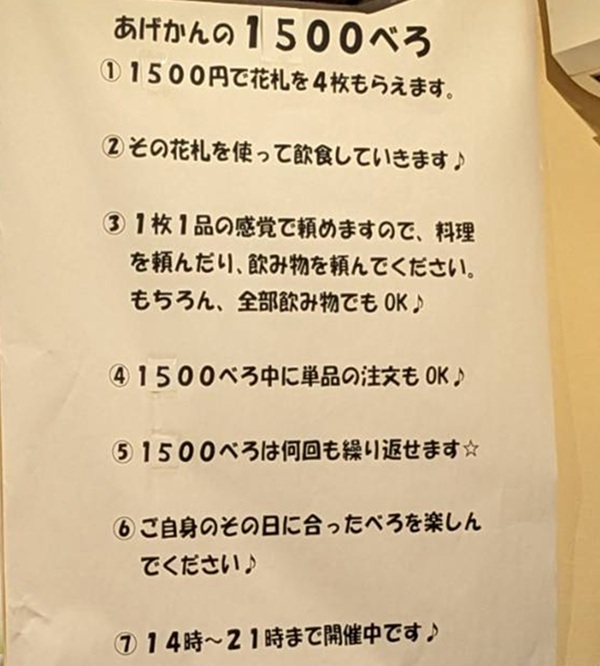 あげかんの1500べろ
① 1500円で花札を4枚もらえます。
② その花札を使って飲食していきます♪
③ 1枚1品の感覚で頼めますので、料理
を頼んだり、飲み物を頼んでください。
もちろん、全部飲み物でもOK♪
④ 1500べろ中に単品の注文もOK♪
⑤ 1500べろは何回も繰り返せます☆
⑥ ご自身のその日に合ったべろを楽しん
でください♪
⑦ 14時～21時まで開催中です♪